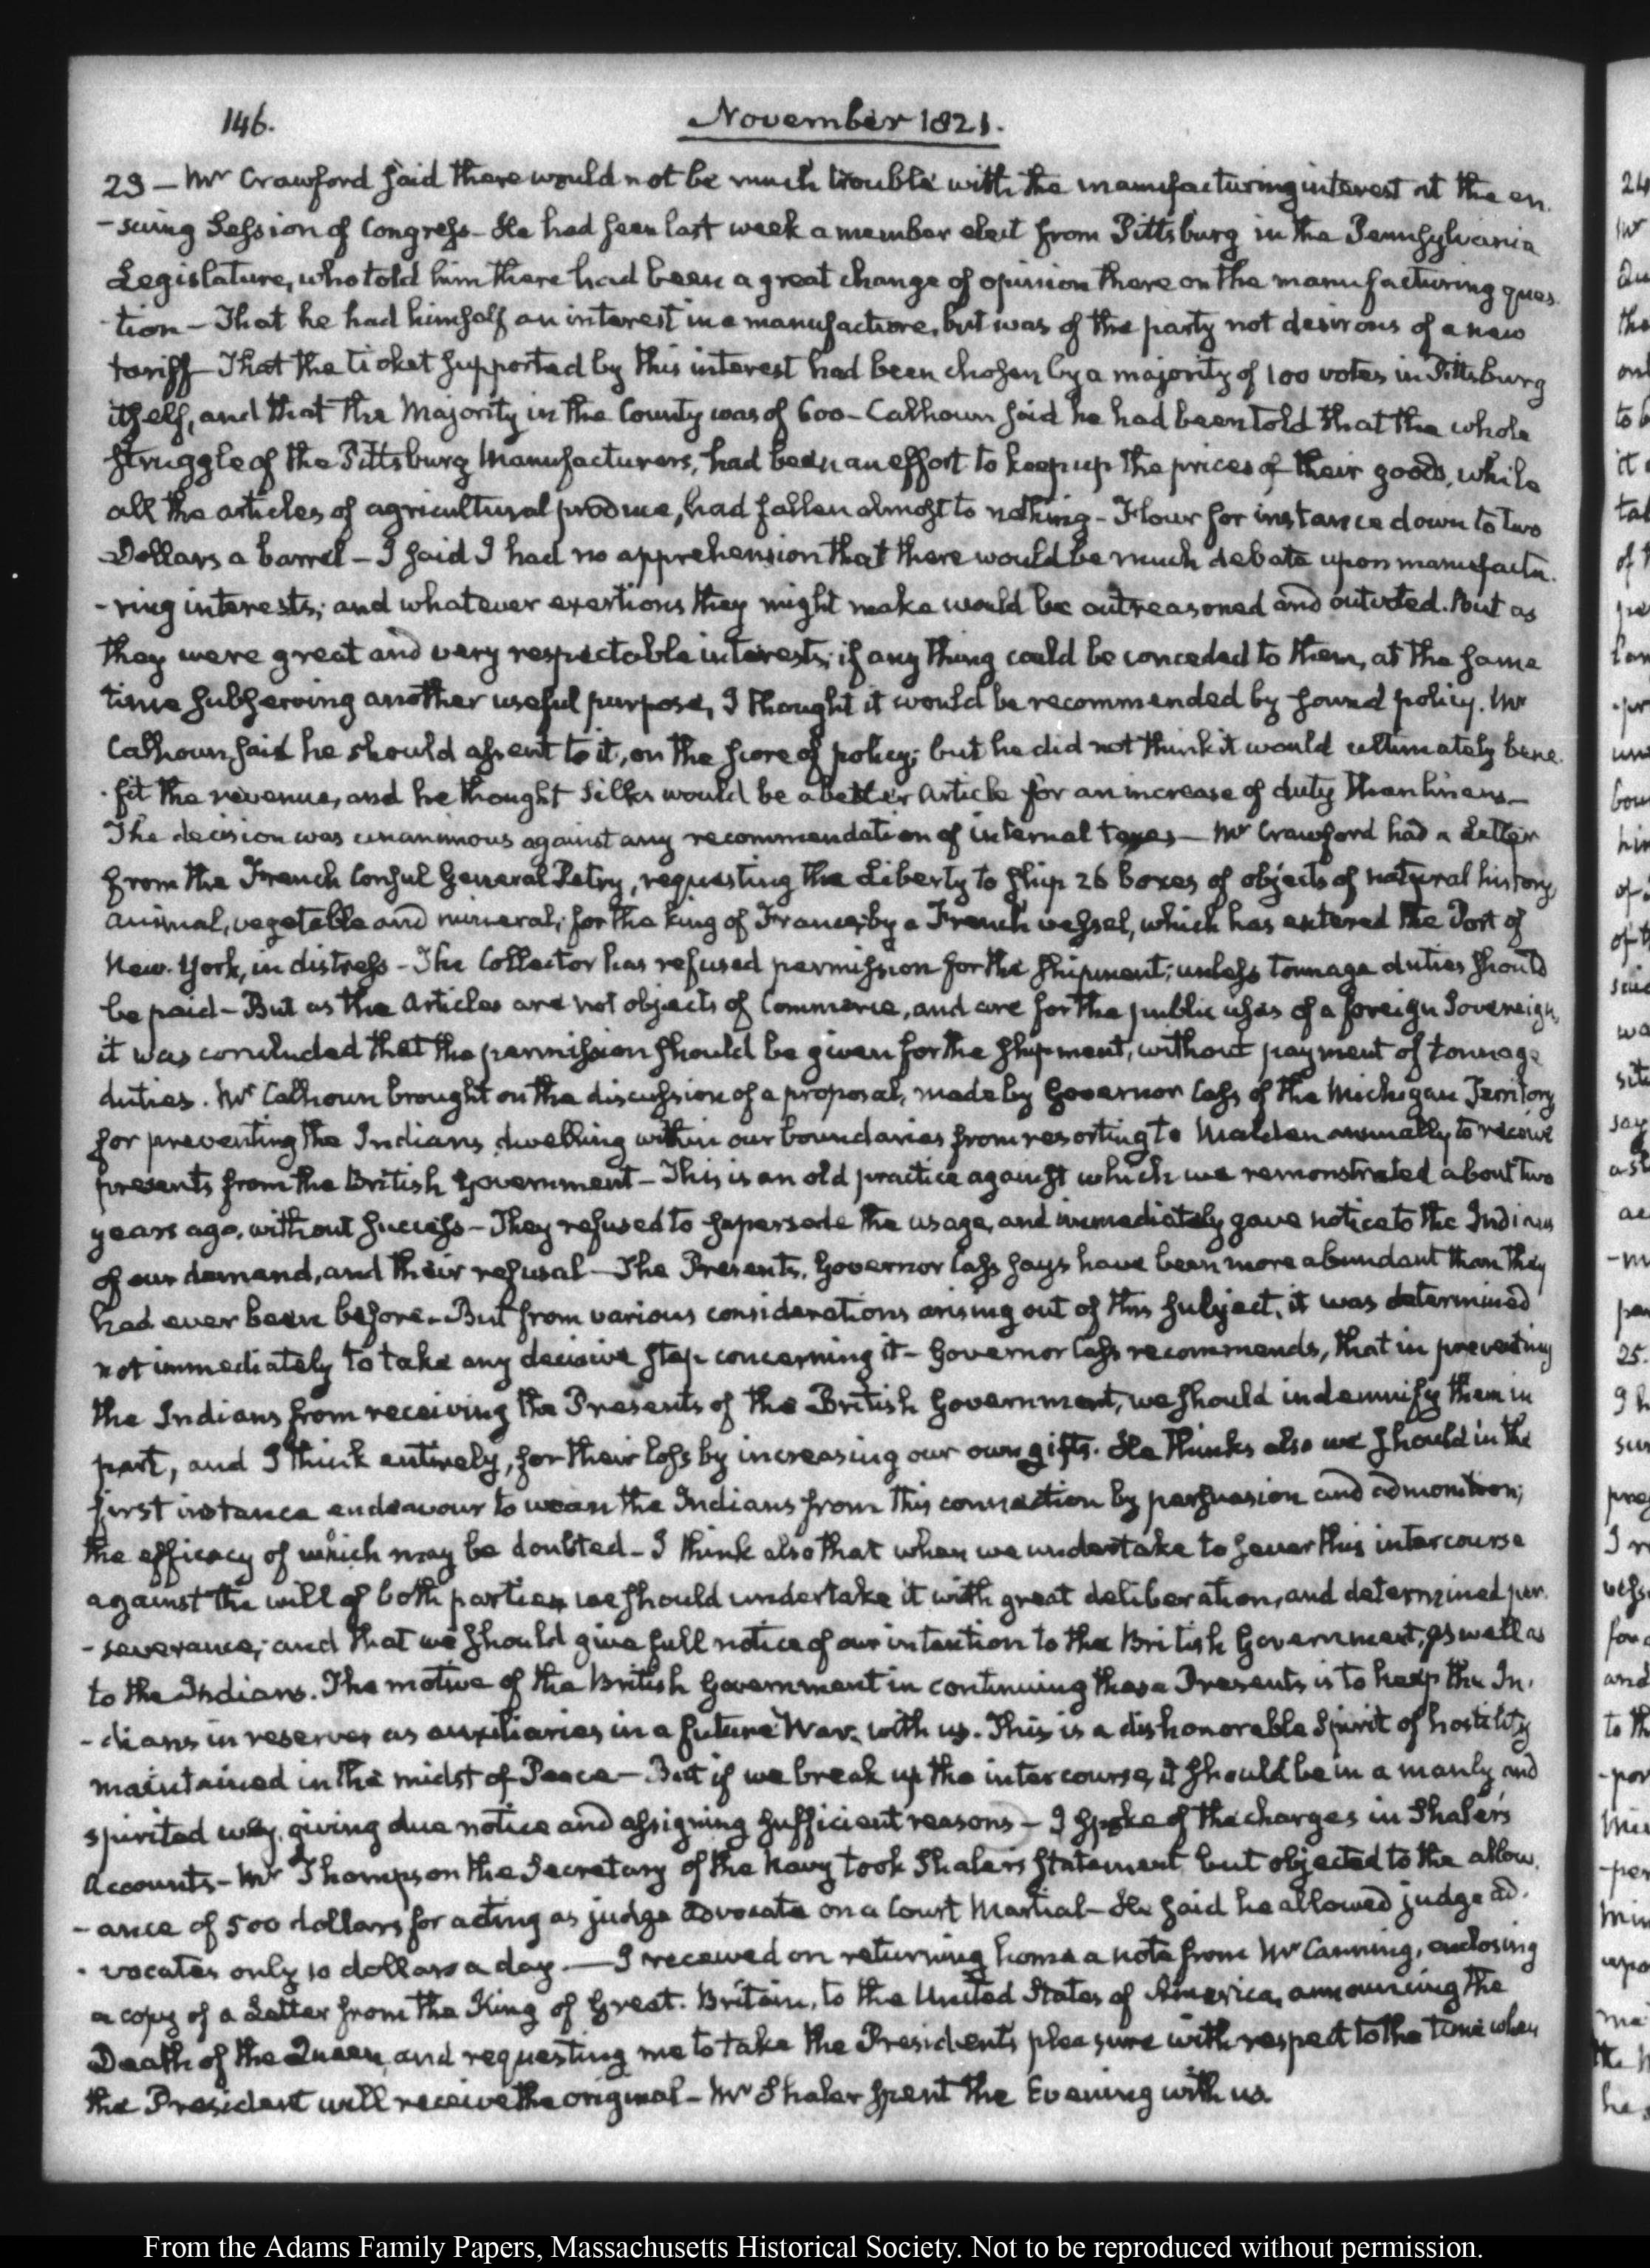 146.
November 1821.
23 - Mr Crawford said there would not be much trouble with the manufacturing interest at the en-
-suing Session of Congress - He had seen last week a member elect from Pittsburg in the Pennsylvania
Legislature, who told him there had been a great change of opinion there on the manufacturing ques-
-tion - That he had himself an interest in a manufacture, but was of the party not desirous of a new
tariff - That the ticket supported by this interest had been chosen by a majority of 100 votes in Pittsburg
itself, and that the Majority in the County was of 600 - Calhoun said he had been told that the whole
struggle of the Pittsburg Manufacturers, had been an effort to keep up the prices of their goods, while
all the articles of agricultural produce, had fallen almost to nothing - Flour for instance down to two
Dollars a barrel - I said I had no apprehension that there would be much debate upon manufactu-
-ring interests; and whatever exertions they might make would be outreasoned and outvoted. But as
they were great and very respectable interests, if any thing could be conceded to them, at the same
time subserving another useful purpose, I thought it would be recommended by sound policy. Mr
Calhoun said he should assent to it, on the score of policy; but he did not think it would ultimately bene-
-fit the revenue, and he thought Silks would be a better Article for an increase of duty than linens -
The decision was unanimous against any recommendation of internal taxes - Mr Crawford had a Letter
from the French Consul General Petry, requesting the Liberty to ship 26 boxes of objects of natural history,
animal, vegetable and mineral; for the king of France; by a French vessel, which has entered the Port of
New-York, in distress - The Collector has refused permission for the shipment; unless tonnage duties should
be paid - But as the Articles are not objects of Commerce, and are for the public uses of a foreign Sovereign,
it was concluded that the permission should be given for the shipment, without payment of tonnage
duties. Mr Calhoun brought on the discussion of a proposal, made by Governor Cass of the Michigan Territory
for preventing the Indians, dwelling within our boundaries from resorting to Malden annually to receive
presents from the British Government - This is an old practice against which we remonstrated about two
years ago, without success - They refused to supersede the usage, and immediately gave notice to the Indians
of our demand, and their refusal - The Presents, Governor Cass says have been more abundant than they
had ever been before - But from various considerations arising out of this subject, it was determined
not immediately to take any decisive step concerning it - Governor Cass recommends, that in preventing
the Indians from receiving the Presents of the British Government, we should indemnify them in
part, and I think entirely, for their loss by increasing our own gifts. He thinks also we should in the
first instance endeavour to wean the Indians from this connection by persuasion and admonition;
the efficacy of which may be doubted - I think also that when we undertake to sever this intercourse
against the will of both parties we should undertake it with great deliberation, and determined per-
-severance; and that we should give full notice of our intention to the British Government, as well as
to the Indians. The motive of the British Government in continuing these Presents is to keep the In-
-dians in reserve as auxiliaries in a future War with us. This is a dishonorable Spirit of hostility
maintained in the midst of Peace - But if we break up the intercourse, it should be in a manly and
spirited way, giving due notice and assigning sufficient reasons - I spoke of the charges in Shaler's
Accounts - Mr Thompson the Secretary of the Navy took Shaler's statement, but objected to the allow-
-ance of 500 dollars for acting as judge advocate on a Court Martial - He said he allowed judge ad-
-vocates only 10 dollars a day. - I received on returning home a note from Mr Canning, enclosing
a copy of a Letter from the King of Great-Britain, to the United States of America, announcing the
Death of the Queen, and requesting me to take the President's pleasure with respect to the time when
the President will receive the original - Mr Shaler spent the Evening with us.
From the Adams Family Papers, Massachusetts Historical Society. Not to be reproduced without permission.